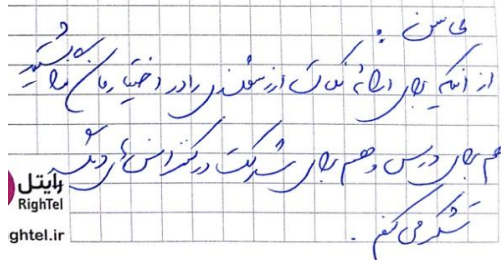 محاسن :
از اینکه برای ارائه نکات ارزشمندی را در اختیار مان می‌گذارید
هم برای درس و هم برای شرکت در کنفرانس های دیگر
تشکر می کنم .
رایتل
RighTel
ghtel.ir